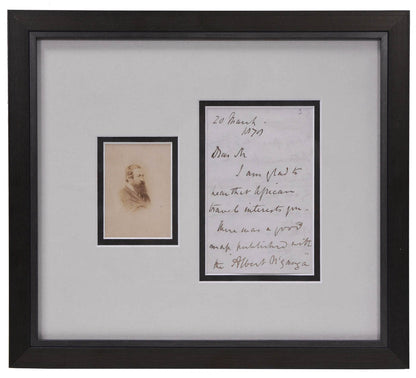 20 March -
1870
Dear Sir
I am glad to
hear that African
travel interests you.
There was a good
map published with
the "Albert N'yanza"